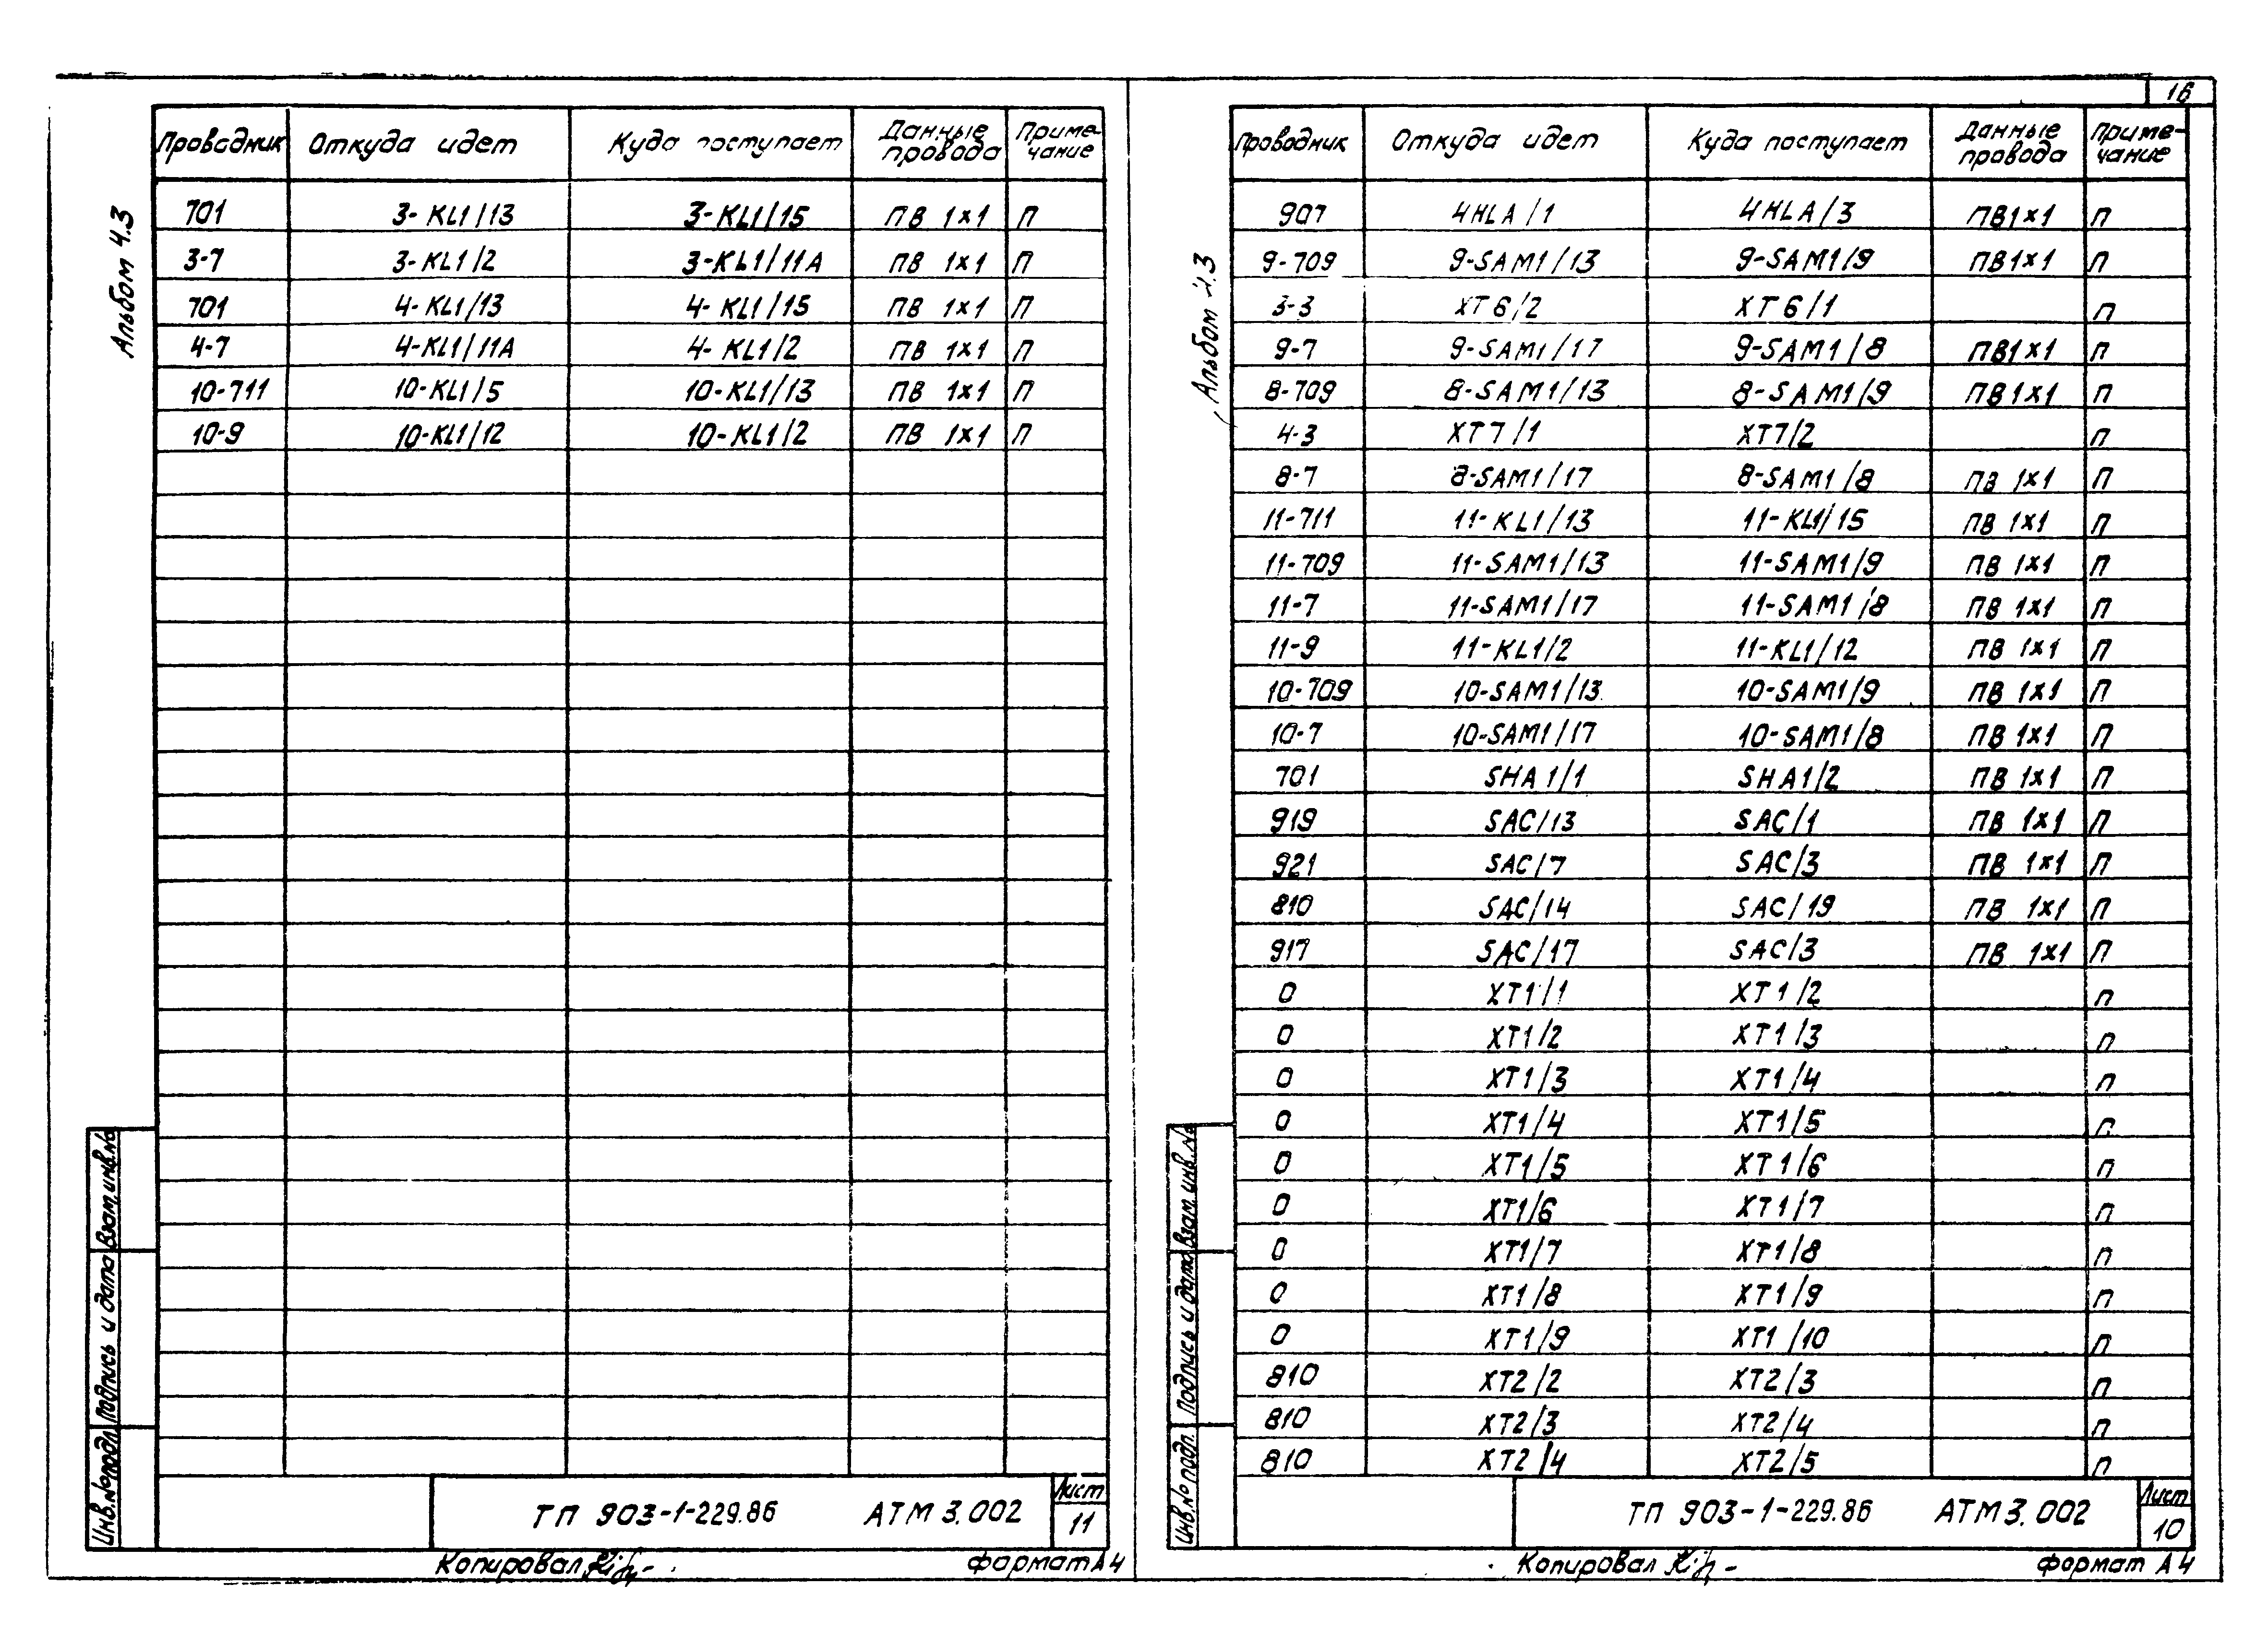 16
Альбом 4.3
Проводник Откуда идет Куда поступает Данные провода Приме-чание
701 3-KL1/13 3-KL1/15 ПВ 1х1 П
3-7 3-KL1/2 3-KL1/11А ПВ 1х1 П
701 4-KL1/13 4-KL1/15 ПВ 1х1 П
4-7 4-KL1/11А 4-KL1/2 ПВ 1х1 П
10-711 10-KL1/5 10-KL1/13 ПВ 1х1 П
10-9 10-KL1/12 10-KL1/2 ПВ 1х1 П
Инв.№подл. Подпись и дата Взам.инв.№
ТП 903-1-229.86 АТМ 3.002 Лист 11
Копировал
формат А4
Альбом 4.3
Проводник Откуда идет Куда поступает Данные провода Приме-чание
907 4HLA/1 4HLA/3 ПВ1х1 П
9-709 9-SAM1/13 9-SAM1/9 ПВ1х1 П
3-3 XT6/2 XT6/1 П
9-7 9-SAM1/17 9-SAM1/8 ПВ1х1 П
8-709 8-SAM1/13 8-SAM1/9 ПВ1х1 П
4-3 XT7/1 XT7/2 П
8-7 8-SAM1/17 8-SAM1/8 ПВ 1х1 П
11-711 11-KL1/13 11-KL1/15 ПВ 1х1 П
11-709 11-SAM1/13 11-SAM1/9 ПВ 1х1 П
11-7 11-SAM1/17 11-SAM1/8 ПВ 1х1 П
11-9 11-KL1/2 11-KL1/12 ПВ 1х1 П
10-709 10-SAM1/13 10-SAM1/9 ПВ 1х1 П
10-7 10-SAM1/17 10-SAM1/8 ПВ 1х1 П
701 SHA1/1 SHA1/2 ПВ 1х1 П
919 SAC/13 SAC/1 ПВ 1х1 П
921 SAC/7 SAC/3 ПВ 1х1 П
810 SAC/14 SAC/19 ПВ 1х1 П
917 SAC/17 SAC/3 ПВ 1х1 П
0 XT1/1 XT1/2 П
0 XT1/2 XT1/3 П
0 XT1/3 XT1/4 П
0 XT1/4 XT1/5 П
0 XT1/5 XT1/6 П
0 XT1/6 XT1/7 П
0 XT1/7 XT1/8 П
0 XT1/8 XT1/9 П
0 XT1/9 XT1/10 П
810 XT2/2 XT2/3 П
810 XT2/3 XT2/4 П
810 XT2/4 XT2/5 П
Инв.№подл. Подпись и дата Взам.инв.№
ТП 903-1-229.86 АТМ 3.002 Лист 10
Копировал
формат А4